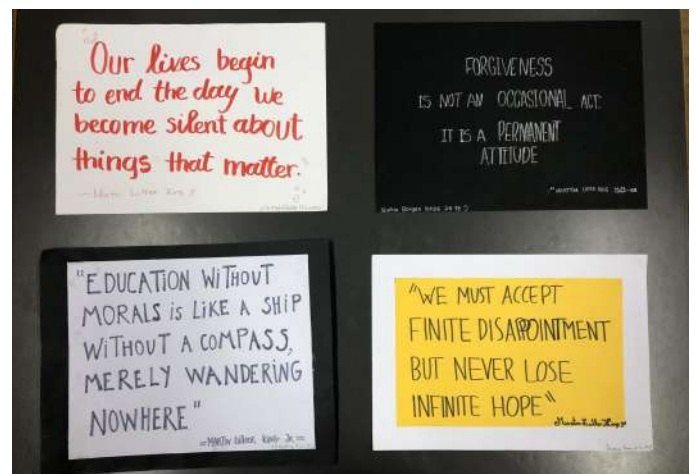 Our lives begin
to end the day we
become silent about
things that matter."
— Martin Luther King Jr
FORGIVENESS
IS NOT AN OCCASIONAL ACT.
IT IS A PERMANENT
ATTITUDE
MARTIN LUTHER KING
"EDUCATION WiTHOUT
MORALS iS LiKE A SHiP
WiTHOUT A COMPASS,
MERELY WANDERING
NOWHERE"
=MARTiN LUTHER KiNG Jr.=
"WE MUST ACCEPT
FINITE DISAPPOINTMENT
BUT NEVER LOSE
INFINITE HOPE"
Martin Luther King Jr